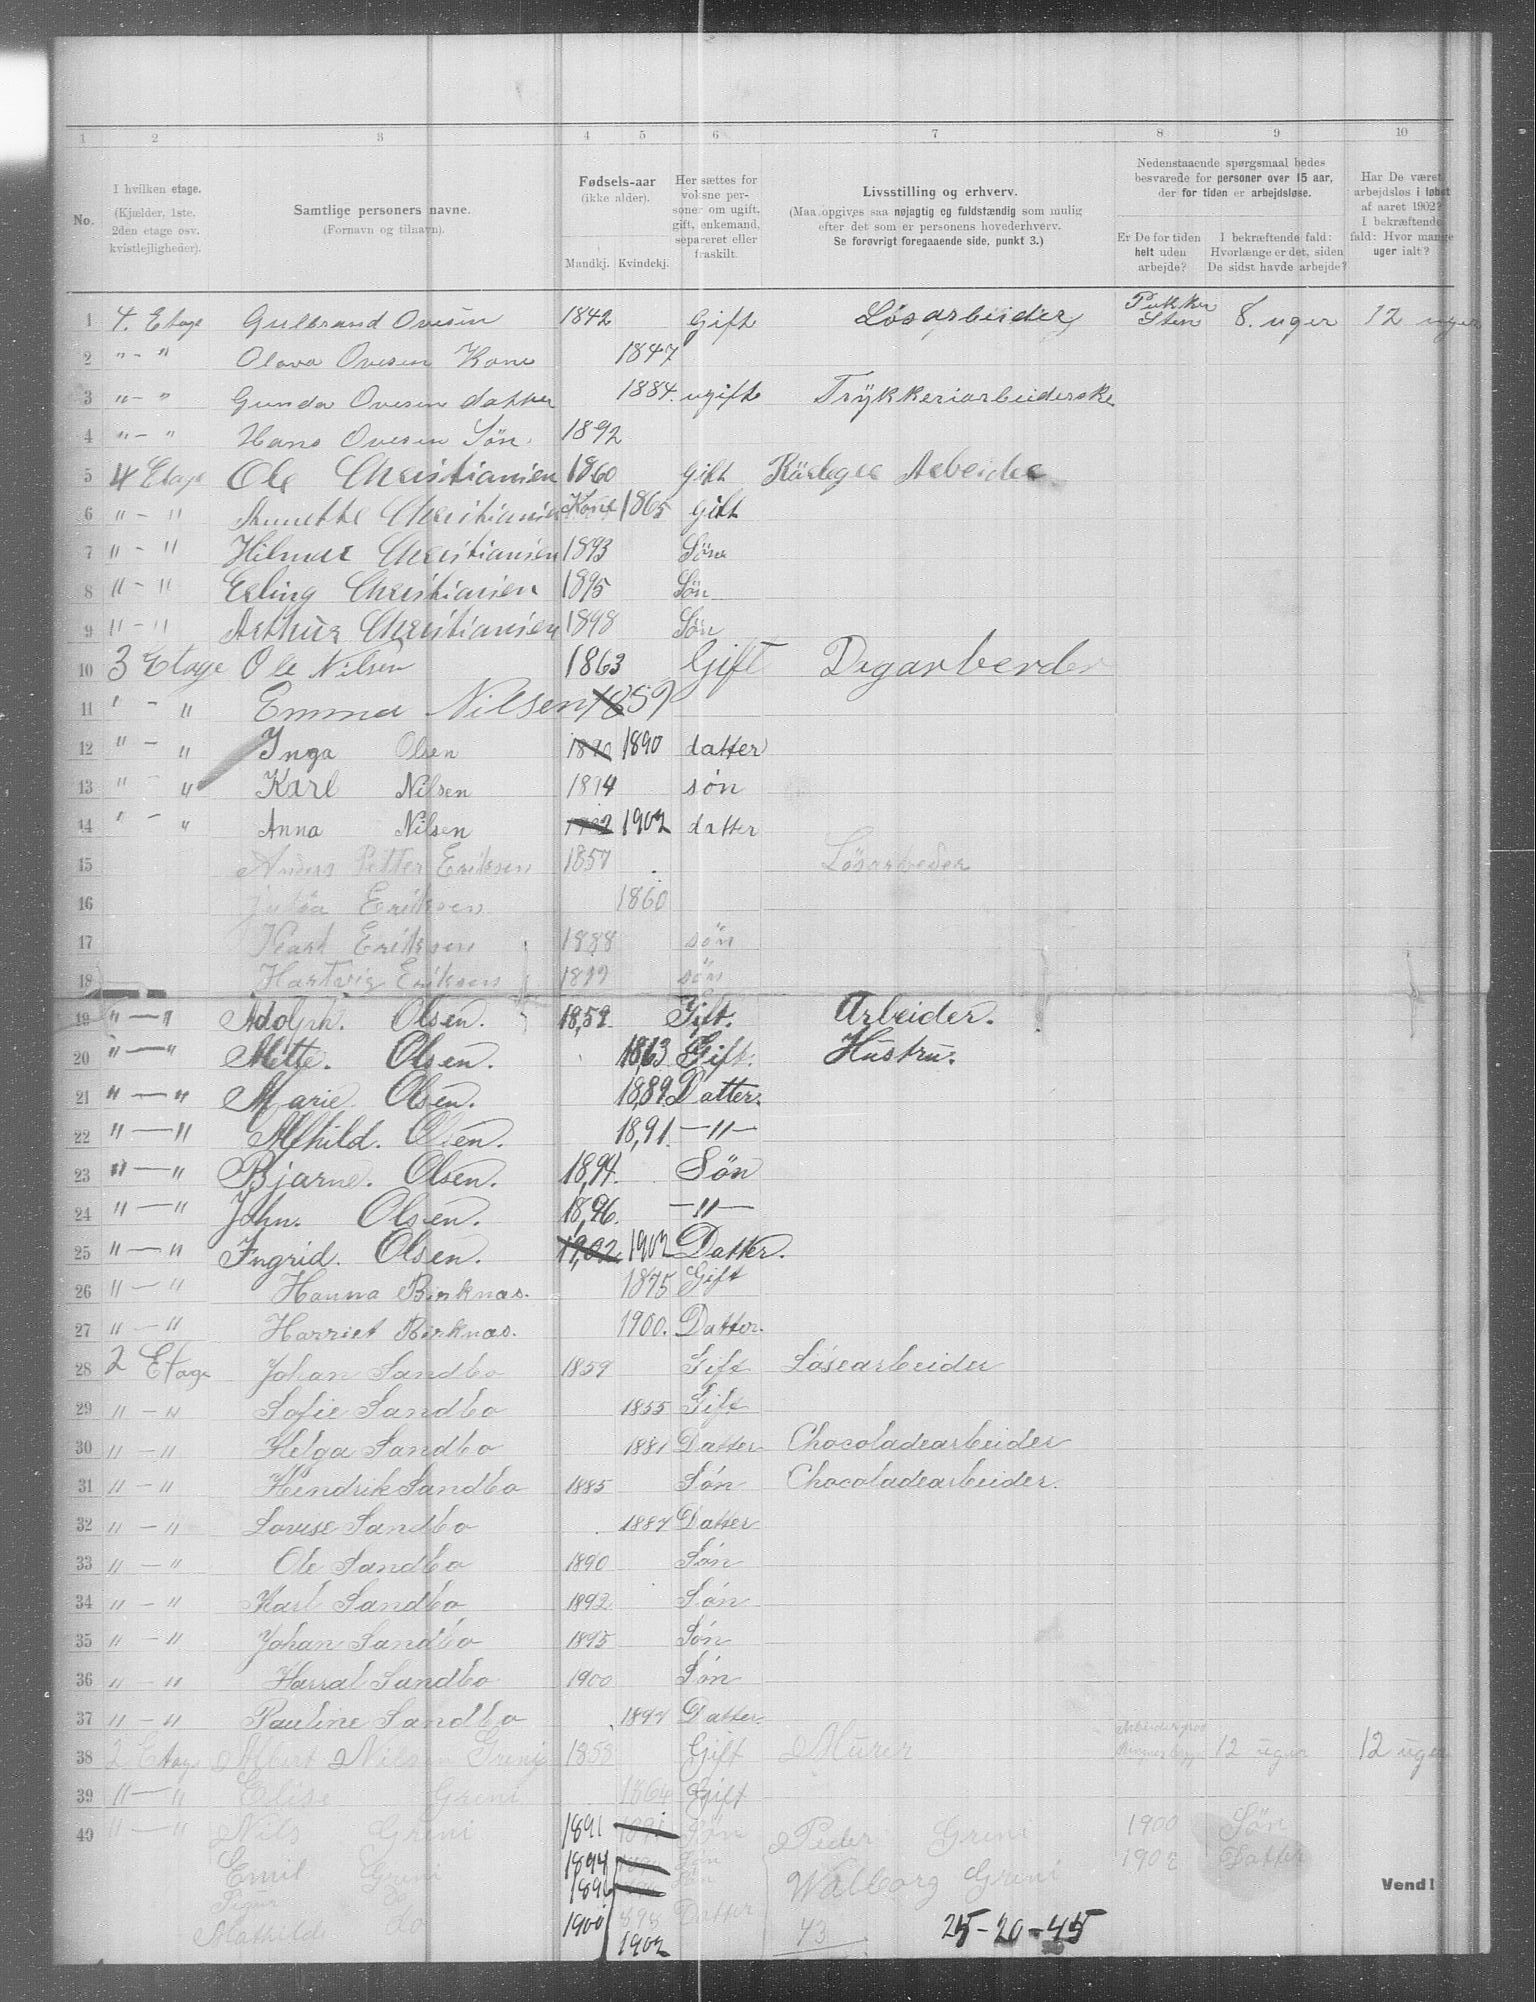 1 2 3 4 5 6 7 8 9 10
No.
I hvilken etage.
(Kjælder, 1ste.
2den etage osv.
kvistlejligheder).
Samtlige personers navne.
(Fornavn og tilnavn).
Fødsels-aar
(ikke alder).
Mandkj. Kvindekj.
Her sættes for
voksne per-
soner om ugift,
gift, enkemand,
separeret eller
fraskilt.
Livsstilling og erhverv.
(Maa opgives saa nøjagtig og fuldstændig som mulig
efter det som er personens hovederhverv.
Se forøvrigt foregaaende side, punkt 3.)
Nedenstaaende spørgsmaal bedes
besvarede for personer over 15 aar,
der for tiden er arbejdsløse.
Er De for tiden
helt uden
arbejde?
I bekræftende fald:
Hvorlænge er det, siden
De sidst havde arbejde?
Har De været
arbejdsløs i løbet
af aaret 1902?
I bekræftende
fald: Hvor mange
uger ialt?
1 4. Etage Gulbrand Ovesen 1842 Gift Løsarbeider Pukker Sten 8. uger 12 uger
2 " - " Olava Ovesen Kone 1847
3 " - " Gunda Ovesen datter 1884. ugift Trykkeriarbeiderske
4 " - " Hans Ovesen Søn. 1892
5 4 Etage Ole Christiansen 1860 gift Arbeider
6 " - " Christiansen Kone 1865 gift
7 " - " Hilmar Christiansen 1893 Søn
8 " - " Erling Christiansen 1895 Søn
9 " - " Arthur Christiansen 1898 Søn
10 3 Etage Ole Nilsen 1863 Gift Dagarbeider
11 " - " Emma Nilsen 1859
12 " - " Inga Olsen 1890 1890 datter
13 " - " Karl Nilsen 1894 søn
14 " - " Anna Nilsen 1902 1902 datter
15 Anders Petter Eriksen 1857 Løsarbeder
16 Eriksen 1860
17 Karl Eriksen 1888 søn
18 Hartvig Eriksen søn
19 " - " Adolph. Olsen. 1859. Gift. Arbeider.
20 " - " Mette. Olsen. 1863 Gift. Hustru.
21 " - " Marie. Olsen. 1889. Datter.
22 " - " Alfhild. Olsen. 1891. - " -
23 " - " Bjarne. Olsen. 1894. Søn
24 " - " John. Olsen. 1896. - " -
25 " - " Ingrid. Olsen. 1902. 1902 Datter.
26 " - " Hanna Birknas. 1875 Gift
27 " - " Harriet Birknas. 1900. Datter.
28 2 Etage Johan Sandbo 1859 Gift Løsearbeider
29 " - " Sofie Sandbo 1855 Gift
30 " - " Helga Sandbo 1881 Datter Chocoladearbeider
31 " - " Hendrik Sandbo 1885 Søn Chocoladearbeider.
32 " - " Lovise Sandbo 1887 Datter
33 " - " Ole Sandbo 1890 Søn
34 " - " Karl Sandbo 1892 Søn
35 " - " Johan Sandbo 1895 Søn
36 " - " Harral Sandbo 1900 Søn
37 " - " Pauline Sandbo 1897 Datter.
38 2 Etage Albert Nilsen Greni 1858 Gift Murer 12 uger 12 uger
39 " - " Elise Greni 1864 Gift
40 " - " Nils Greni 1891 1891 Søn Peder Greni 1900 Søn
Emil Greni 1894 Søn Walborg Greni 1902 Datter
Sigur do 1896 Søn
Mathilde do 1900 1898 Datter
1902
43 25-20-45
Vend!